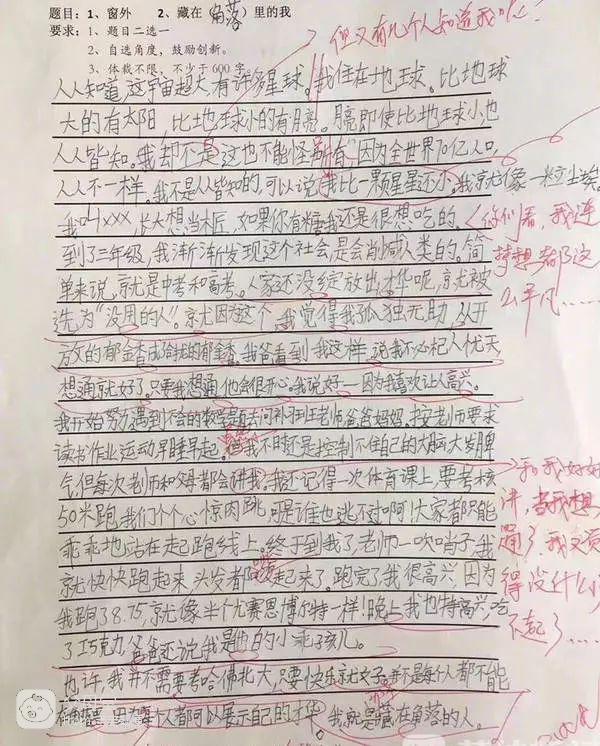 题目：1、窗外 2、藏在（角落）里的我
要求：1、题目二选一
2、自选角度，鼓励创新。
3、体裁不限，不少于 600 字
但又有几个人知道我呢？
人人知道，这宇宙超大，有许多星球。我住在地球。比地球
大的有太阳，比地球小的有月亮。月亮即使比地球小，也
人人皆知。我却不是这也不能怪所有，因为全世界70亿人口，
人人不一样。我不是人皆知的，可以说我比一颗星星还小。我就像一粒尘埃。
我叫xxx，长大想当木匠，如果你有糖我还是很想吃的。
到了三年级，我渐渐发现这个社会，是会消灭人类的。简
单来说，就是中考和高考。人家还没绽放出才华呢，就被
选为“没用的人”。就因为这个，我觉得我孤独无助，从开
放的郁金香成给我的郁金香。我爸看到我这样，说我不必杞人忧天
想通就好了。只要我想通，他会很开心。我说好——因为我喜欢让人高兴。
我开始努力，遇到不会的数学题去问补习班老师爸爸妈妈，按老师要求
读书作业运动早睡早起。但我不时还是控制不住自己的大脑大发脾
气，但每次老师和父母都会讲我，我还记得一次体育课上，要考核
50米跑，我们个个心惊肉跳，可是谁也逃不过啊！大家都只能
乖乖地站在起跑线上。终于到我了，老师一吹哨子，我
就快快跑起来，头发都起来了。跑完了我很高兴，因为
我跑了8.75，就像半个尤赛恩博尔特一样！晚上我也特高兴，吃
了巧克力，爸爸还说我是他的小乖孩儿。
也许，我并不需要考哈佛北大，只要快乐就好，并不是每个人都不能
因为每个人都可以展示自己的才华。我就是藏在角落的人。
你们看，我连
梦想都这
么平凡……
和我好好
讲，当我想
通了，我又觉
得没什么